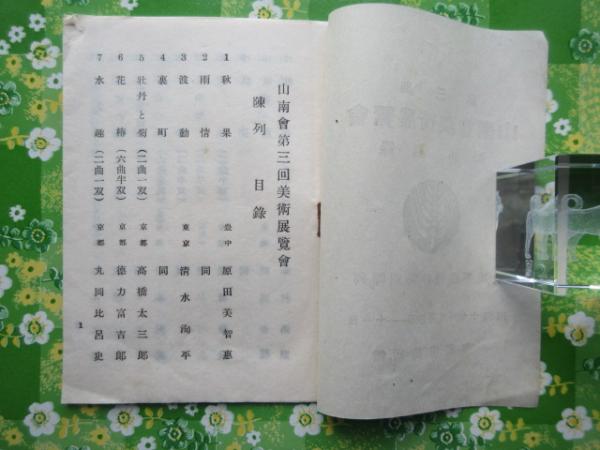 山南會第三回美術展覽會
陳列目錄
1 秋果 豊中 原田美智惠
2 雨情 同
3 波動 東京 清水洵平
4 裏町 同
5 牡丹と菊（二曲一双） 京都 高橋太三郎
6 花椿（六曲半双） 京都 德力富吉郎
7 水趣（二曲一双） 京都 丸岡比呂史
1